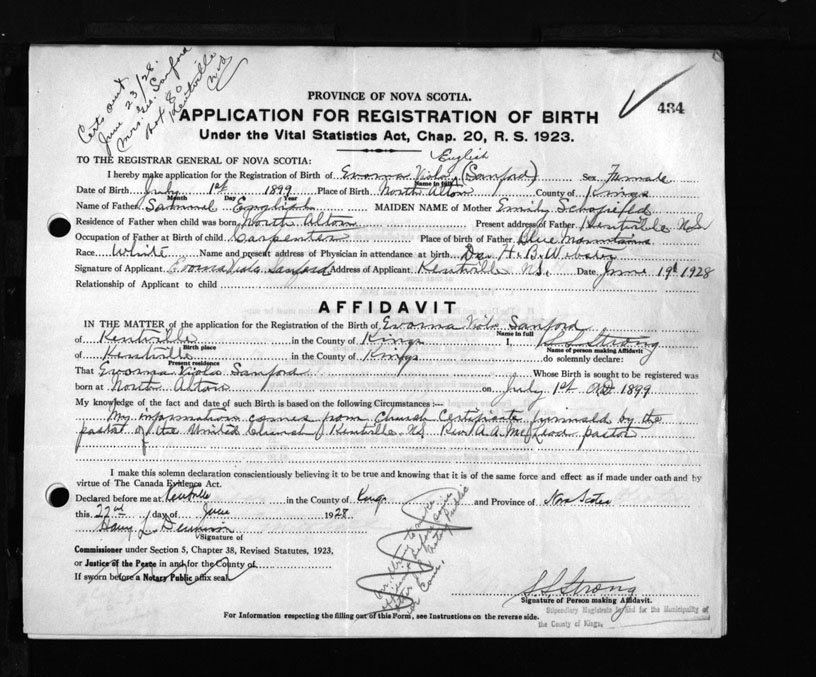 Certs out
June 23/28.
Mrs. Geo. Sanford
Box 80
Kentville
N.S.
PROVINCE OF NOVA SCOTIA.
434
APPLICATION FOR REGISTRATION OF BIRTH
Under the Vital Statistics Act, Chap. 20, R. S. 1923.
TO THE REGISTRAR GENERAL OF NOVA SCOTIA:
English
I hereby make application for the Registration of Birth of Evorna Viola (Sanford) Sex Female
Name in full
Date of Birth July 1st 1899 Place of Birth North Alton County of Kings
Month Day Year
Name of Father Samuel English MAIDEN NAME of Mother Emily Schofield
Residence of Father when child was born North Alton Present address of Father Kentville N.S.
Occupation of Father at Birth of child Carpenter Place of birth of Father Blue Mountains
Race White Name and present address of Physician in attendance at birth Dr. H. B. Webster
Signature of Applicant Evorna Viola Sanford Address of Applicant Kentville N.S. Date June 19th 1928
Relationship of Applicant to child
AFFIDAVIT
IN THE MATTER of the application for the Registration of the Birth of Evorna Viola Sanford
Name in full
of Kentville in the County of Kings I, Strong
Birth place Name of person making Affidavit
of Kentville in the County of Kings do solemnly declare:
Present residence
That Evorna Viola Sanford Whose Birth is sought to be registered was
born at North Alton on July 1st AD 1899
My knowledge of the fact and date of such Birth is based on the following Circumstances:—
My information comes from Church Certificate furnished by the
pastor of the United Church of Kentville NS Rev. A. A. McLeod pastor
I make this solemn declaration conscientiously believing it to be true and knowing that it is of the same force and effect as if made under oath and by
virtue of The Canada Evidence Act.
Declared before me at Kentville in the County of Kings and Province of Nova Scotia
this 22nd day of June 1928
Harry L. Dennison
Signature of
Commissioner under Section 5, Chapter 38, Revised Statutes, 1923,
or Justice of the Peace in and for the County of
If sworn before a Notary Public affix seal
S. S. Strong
Signature of Person making Affidavit.
Stipendiary Magistrate in and for the Municipality of
the County of Kings.
For Information respecting the filling out of this Form, see Instructions on the reverse side.